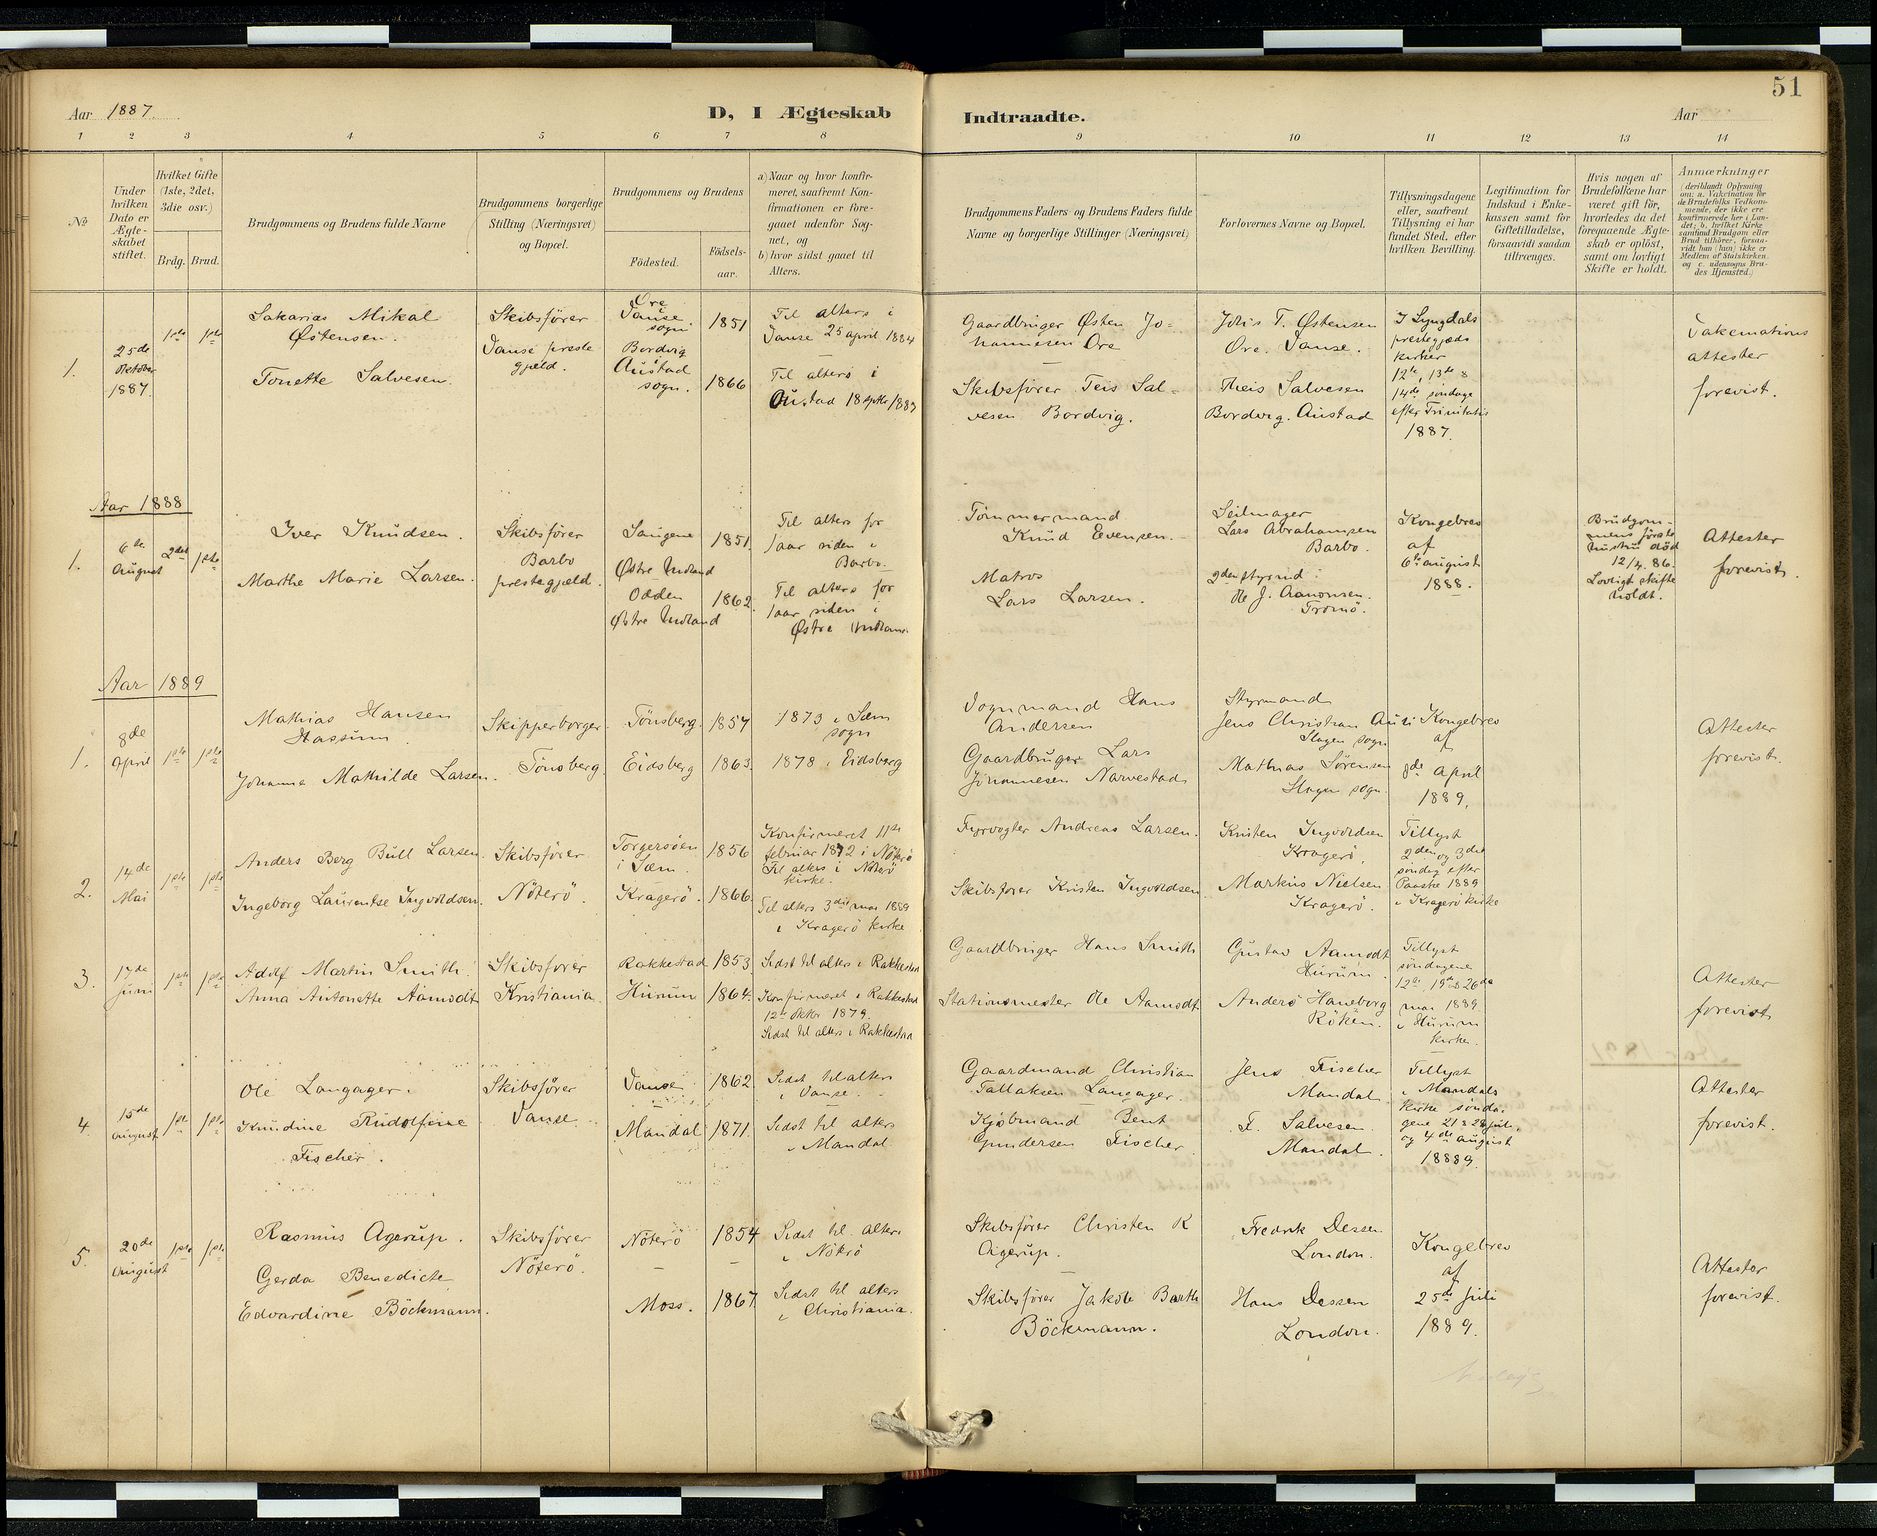 51
Aar 1887.
D, I Ægteskab
Indtraadte.
Aar
1 2 3 4 5 6 7 8 9 10 11 12 13 14
No
Under hvilken Dato er Ægteskabet stiftet.
Hvilket Gifte (1ste, 2det, 3die osv.)
Brdg. Brud.
Brudgommens og Brudens fulde Navne
Brudgommens borgerlige Stilling (Næringsvei) og Bopæl.
Brudgommens og Brudens
Fødested.
Fødselsaar.
a) Naar og hvor konfirmeret, saafremt Konfirmationen er foregaaet udenfor Sognet, og
b) hvor sidst gaaet til Alters.
Brudgommens Faders og Brudens Faders fulde Navne og borgerlige Stillinger (Næringsvei)
Forlovernes Navne og Bopæl.
Tillysningsdagene eller, saafremt Tillysning ei har fundet Sted, efter hvilken Bevilling.
Legitimation for Indskud i Enkekassen samt for Giftetilladelse, forsaavidt saadan tiltrænges.
Hvis nogen af Brudefolkene har været gift før, hvorledes da det foregaaende Ægteskab er opløst, samt om lovligt Skifte er holdt.
Anmærkninger
(deriblandt Oplysning om: a. Vakcination for de Brudefolks Vedkommende, der ikke ere konfirmerede her i Landet; b. hvilket Kirkesamfund Brudgom eller Brud tilhører, forsaavidt han (hun) ikke er Medlem af Statskirken, og c. udensogns Brudes Hjemsted.)
1.
25de Oktober 1887.
1ste 1ste
Sakarias Mikal
Østensen.
Tonette Salvesen.
Skibsfører
Vanse prestegjeld.
Ore
Vanse sogn
1851
Bordvig
Austad sogn.
1866
Til alters i
Vanse 25 april 1884
Til alters i
Austad 18 sptbr 1883
Gaardbruger Østen Johannesen Ore
Skibsfører Teis Salvesen Bordvig.
Johs T. Østensen
Ore. Vanse.
Theis Salvesen
Bordvig. Austad
I Lyngdals prestegjelds kirker
12te, 13de &
14de søndage
efter Trinitatis
1887.
Vakcinations
attester
forevist.
Aar 1888
1.
6te August
2det 1ste
Iver Knudsen.
Marthe Marie Larsen.
Skibsfører
Barbo
prestegjeld.
Songene
1851.
Østre Moland
Odden
1862.
Østre Moland
Til alters for
1 aar siden i
Barbo.
Til alters for
1 aar siden i
Østre Moland
Tømmermand
Knud Evensen.
Matros
Lars Larsen.
Seilmager
Lars Abrahamsen
Barbo.
2den styrmd:
Ole J. Aanonsen.
Tromø.
Kongebrev
af
6te august
1888.
Brudgommens første
hustru død
12/4. 86.
Lovligt skifte
holdt.
Attester
forevist.
Aar 1889
1.
8de April
1ste 1ste
Mathias Hansen
Hassum.
Johanna Mathilde Larsen.
Skipperborger.
Tønsberg.
Tønsberg.
1857
Eidsberg
1863.
1873 i Sæm
sogn
1878 i Eidsberg
Vognmand Hans
Andersen
Gaardbruger Lars
Johannesen Narvestad
Styrmand
Jens Christian Auli
Slagen sogn
Mathias Sørensen
Slagen sogn.
Kongebrev
af
8de April
1889.
Attester
forevist.
2.
14de Mai
1ste 1ste
Anders Berg Bull Larsen.
Ingeborg Laurentse Ingvoldsen.
Skibsfører
Nøterø.
Torgersøen
i Sæm.
1856
Kragerø.
1866.
Konfirmeret 11te
februar 1872 i Nøterø
Til alters i Nøterø
kirke.
Til alters 3die mai 1889
i Kragerø kirke
Fyrvogter Andreas Larsen.
Skibsfører Kristen Ingvoldsen
Kristen Ingvoldsen
Kragerø.
Markus Nielsen
Kragerø.
Tillyst
2den og 3die
søndag efter
Paaske 1889
i Kragerø kirke
3.
17de Juni
1ste 1ste
Adolf Martin Smith.
Anna Antonette Aamodt
Skibsfører
Kristiania.
Rakkestad
1853
Hurum
1864.
Sidst til alters i Rakkestad
Konfirmeret i Rakkestad
12te Oktbr 1879.
Sidst til alters i Rakkestad
Gaardbruger Hans Smith
Stationsmester Ole Aamodt
Gustav Aamodt
Hurum.
Anders Haneborg
Røken.
Tillyst
søndagene
12te, 19de & 26de
mai 1889.
i Hurum
kirke.
Attester
forevist
4.
15de august
1ste 1ste
Ole Langager.
Knudine Rudolfine
Fischer.
Skibsfører
Vanse.
Vanse
1862
Mandal
1871.
Sidst til alters
i Vanse.
Sidst til alters
i Mandal
Gaardmand Christian
Tallaksen Langager.
Kjøbmand Bent
Gundersen Fischer.
Jens Fischer
Mandal.
F. Salvesen.
Mandal.
Tillyst
i Mandals
kirke søndagene 21 & 28 juli,
og 4de august
18889.
Attester
forevist.
5.
20de August
1ste 1ste
Rasmus Agerup.
Gerda Benedicte
Edvardine Böckmann.
Skibsfører
Nøterø.
Nøterø
1854
Moss.
1867.
Sidst til alters
i Nøterø
Sidst til alters
i Christiania.
Skibsfører Christen K
Agerup.
Skibsfører Jakob Barth
Böckmann.
Fredrik Dessen
London.
Hans Dessen
London.
Kongebrev
af
25de Juli
1889.
Attester
forevist.